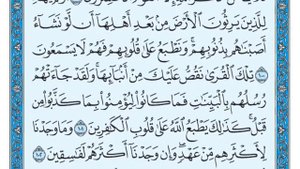 لِلَّذِينَ يَرِثُونَ ٱلْأَرْضَ مِنۢ بَعْدِ أَهْلِهَآ أَن لَّوْ نَشَآءُ
أَصَبْنَٰهُم بِذُنُوبِهِمْ ۚ وَنَطْبَعُ عَلَىٰ قُلُوبِهِمْ فَهُمْ لَا يَسْمَعُونَ
١٠٠ تِلْكَ ٱلْقُرَىٰ نَقُصُّ عَلَيْكَ مِنْ أَنۢبَآئِهَا ۚ وَلَقَدْ جَآءَتْهُمْ
رُسُلُهُم بِٱلْبَيِّنَٰتِ فَمَا كَانُوا۟ لِيُؤْمِنُوا۟ بِمَا كَذَّبُوا۟ مِن
قَبْلُ ۚ كَذَٰلِكَ يَطْبَعُ ٱللَّهُ عَلَىٰ قُلُوبِ ٱلْكَٰفِرِينَ ١٠١ وَمَا وَجَدْنَا
لِأَكْثَرِهِم مِّنْ عَهْدٍ ۖ وَإِن وَجَدْنَآ أَكْثَرَهُمْ لَفَٰسِقِينَ ١٠٢